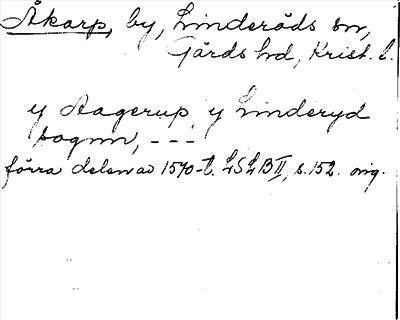 Åkarp, by, Linderöds sn,
Gärds hd, Krist. l.
y Aagerup y Linderyd
sognn, ---
förra delen av 1570-t. LSLB II, s. 152. orig.